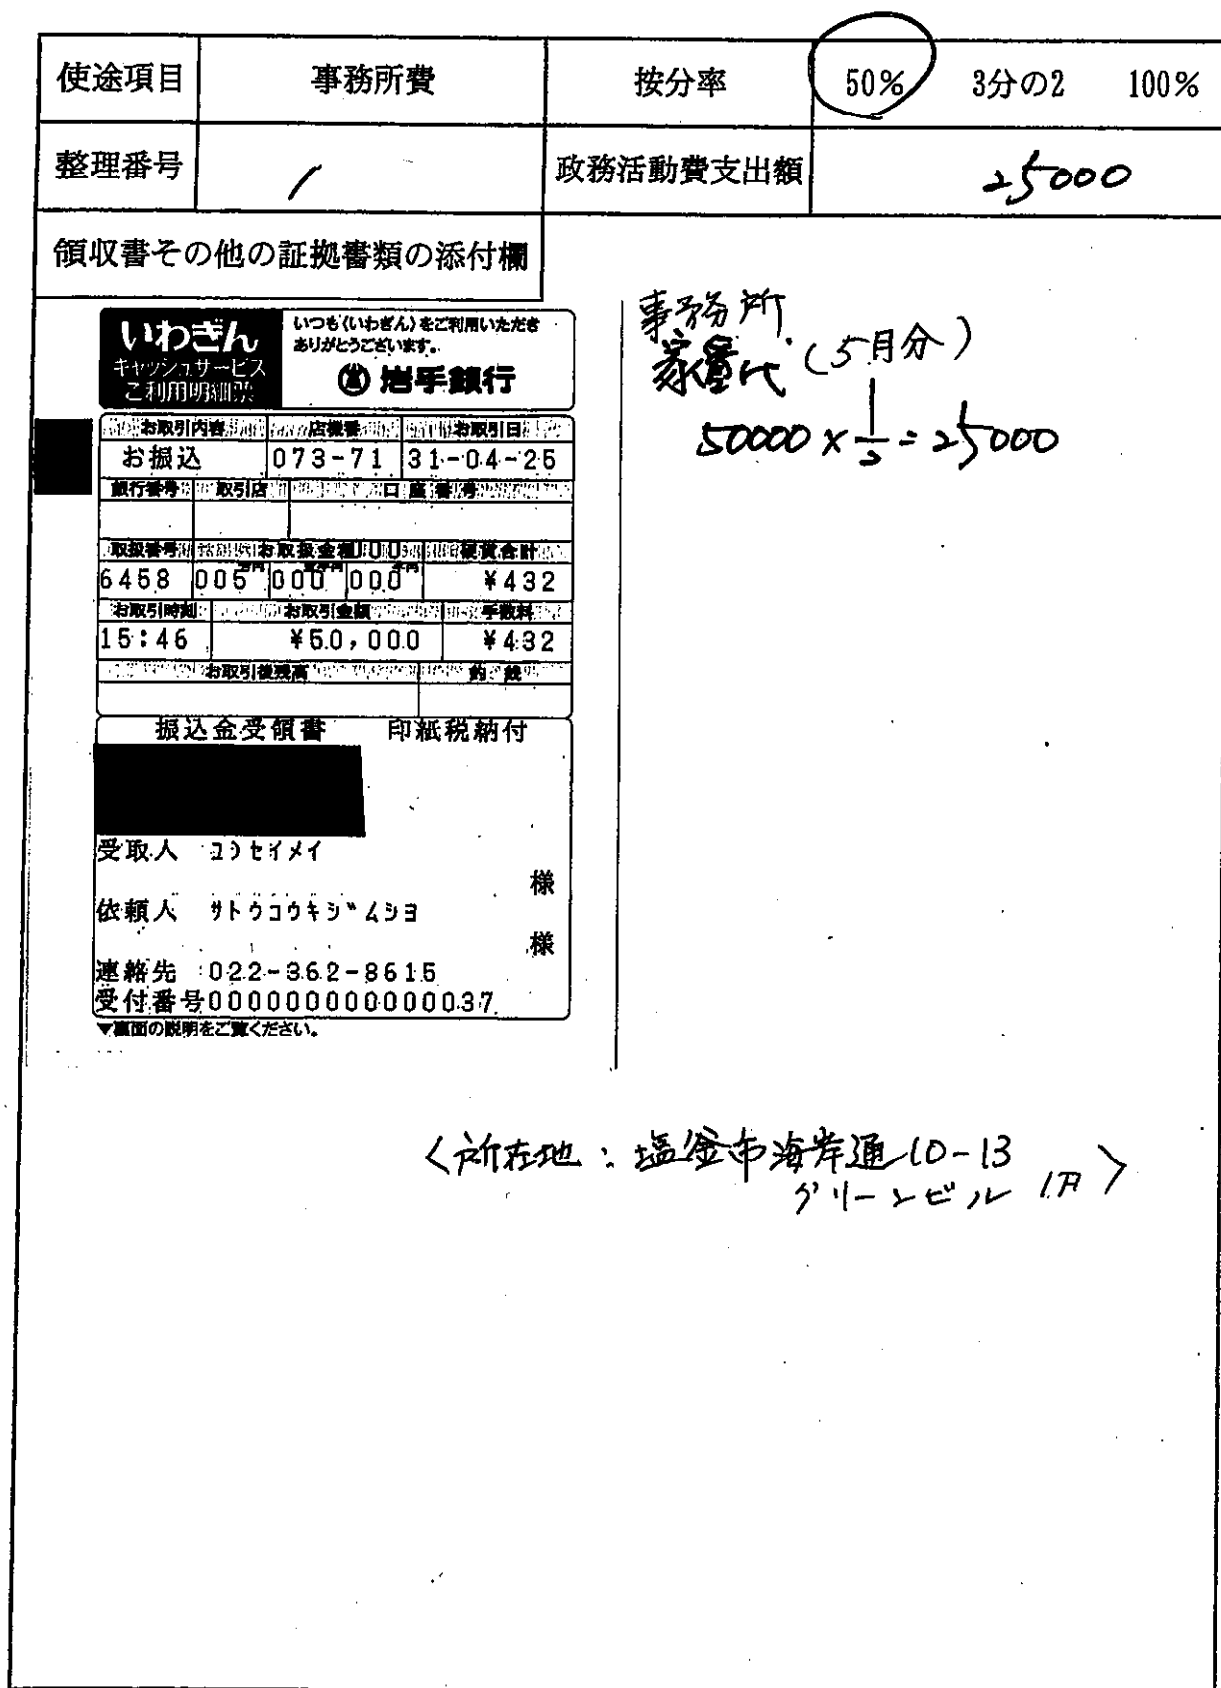 使途項目 事務所費 按分率 50% 3分の2 100%
整理番号 1 政務活動費支出額 25000
領収書その他の証拠書類の添付欄
いわぎん
キャッシュサービス
ご利用明細票
いつも〈いわぎん〉をご利用いただき
ありがとうございます。
岩手銀行
お取引内容 店機番 お取引日
お振込 073-71 31-04-25
銀行番号 取引店 口座番号
取扱番号 お取扱金種 硬貨合計
6458 005 000 000 ¥432
お取引時刻 お取引金額 手数料
15:46 ¥50,000 ¥432
お取引後残高 釣銭
振込金受領書 印紙税納付
受取人 コンセイメイ
様
依頼人 サトウコウキジムシヨ
様
連絡先 022-362-8615
受付番号00000000000037
▼裏面の説明をご覧ください。
事務所
家賃代(5月分)
50000×1/2=25000
〈所在地:塩釜市海岸通10-13
グリーンビル 1F〉